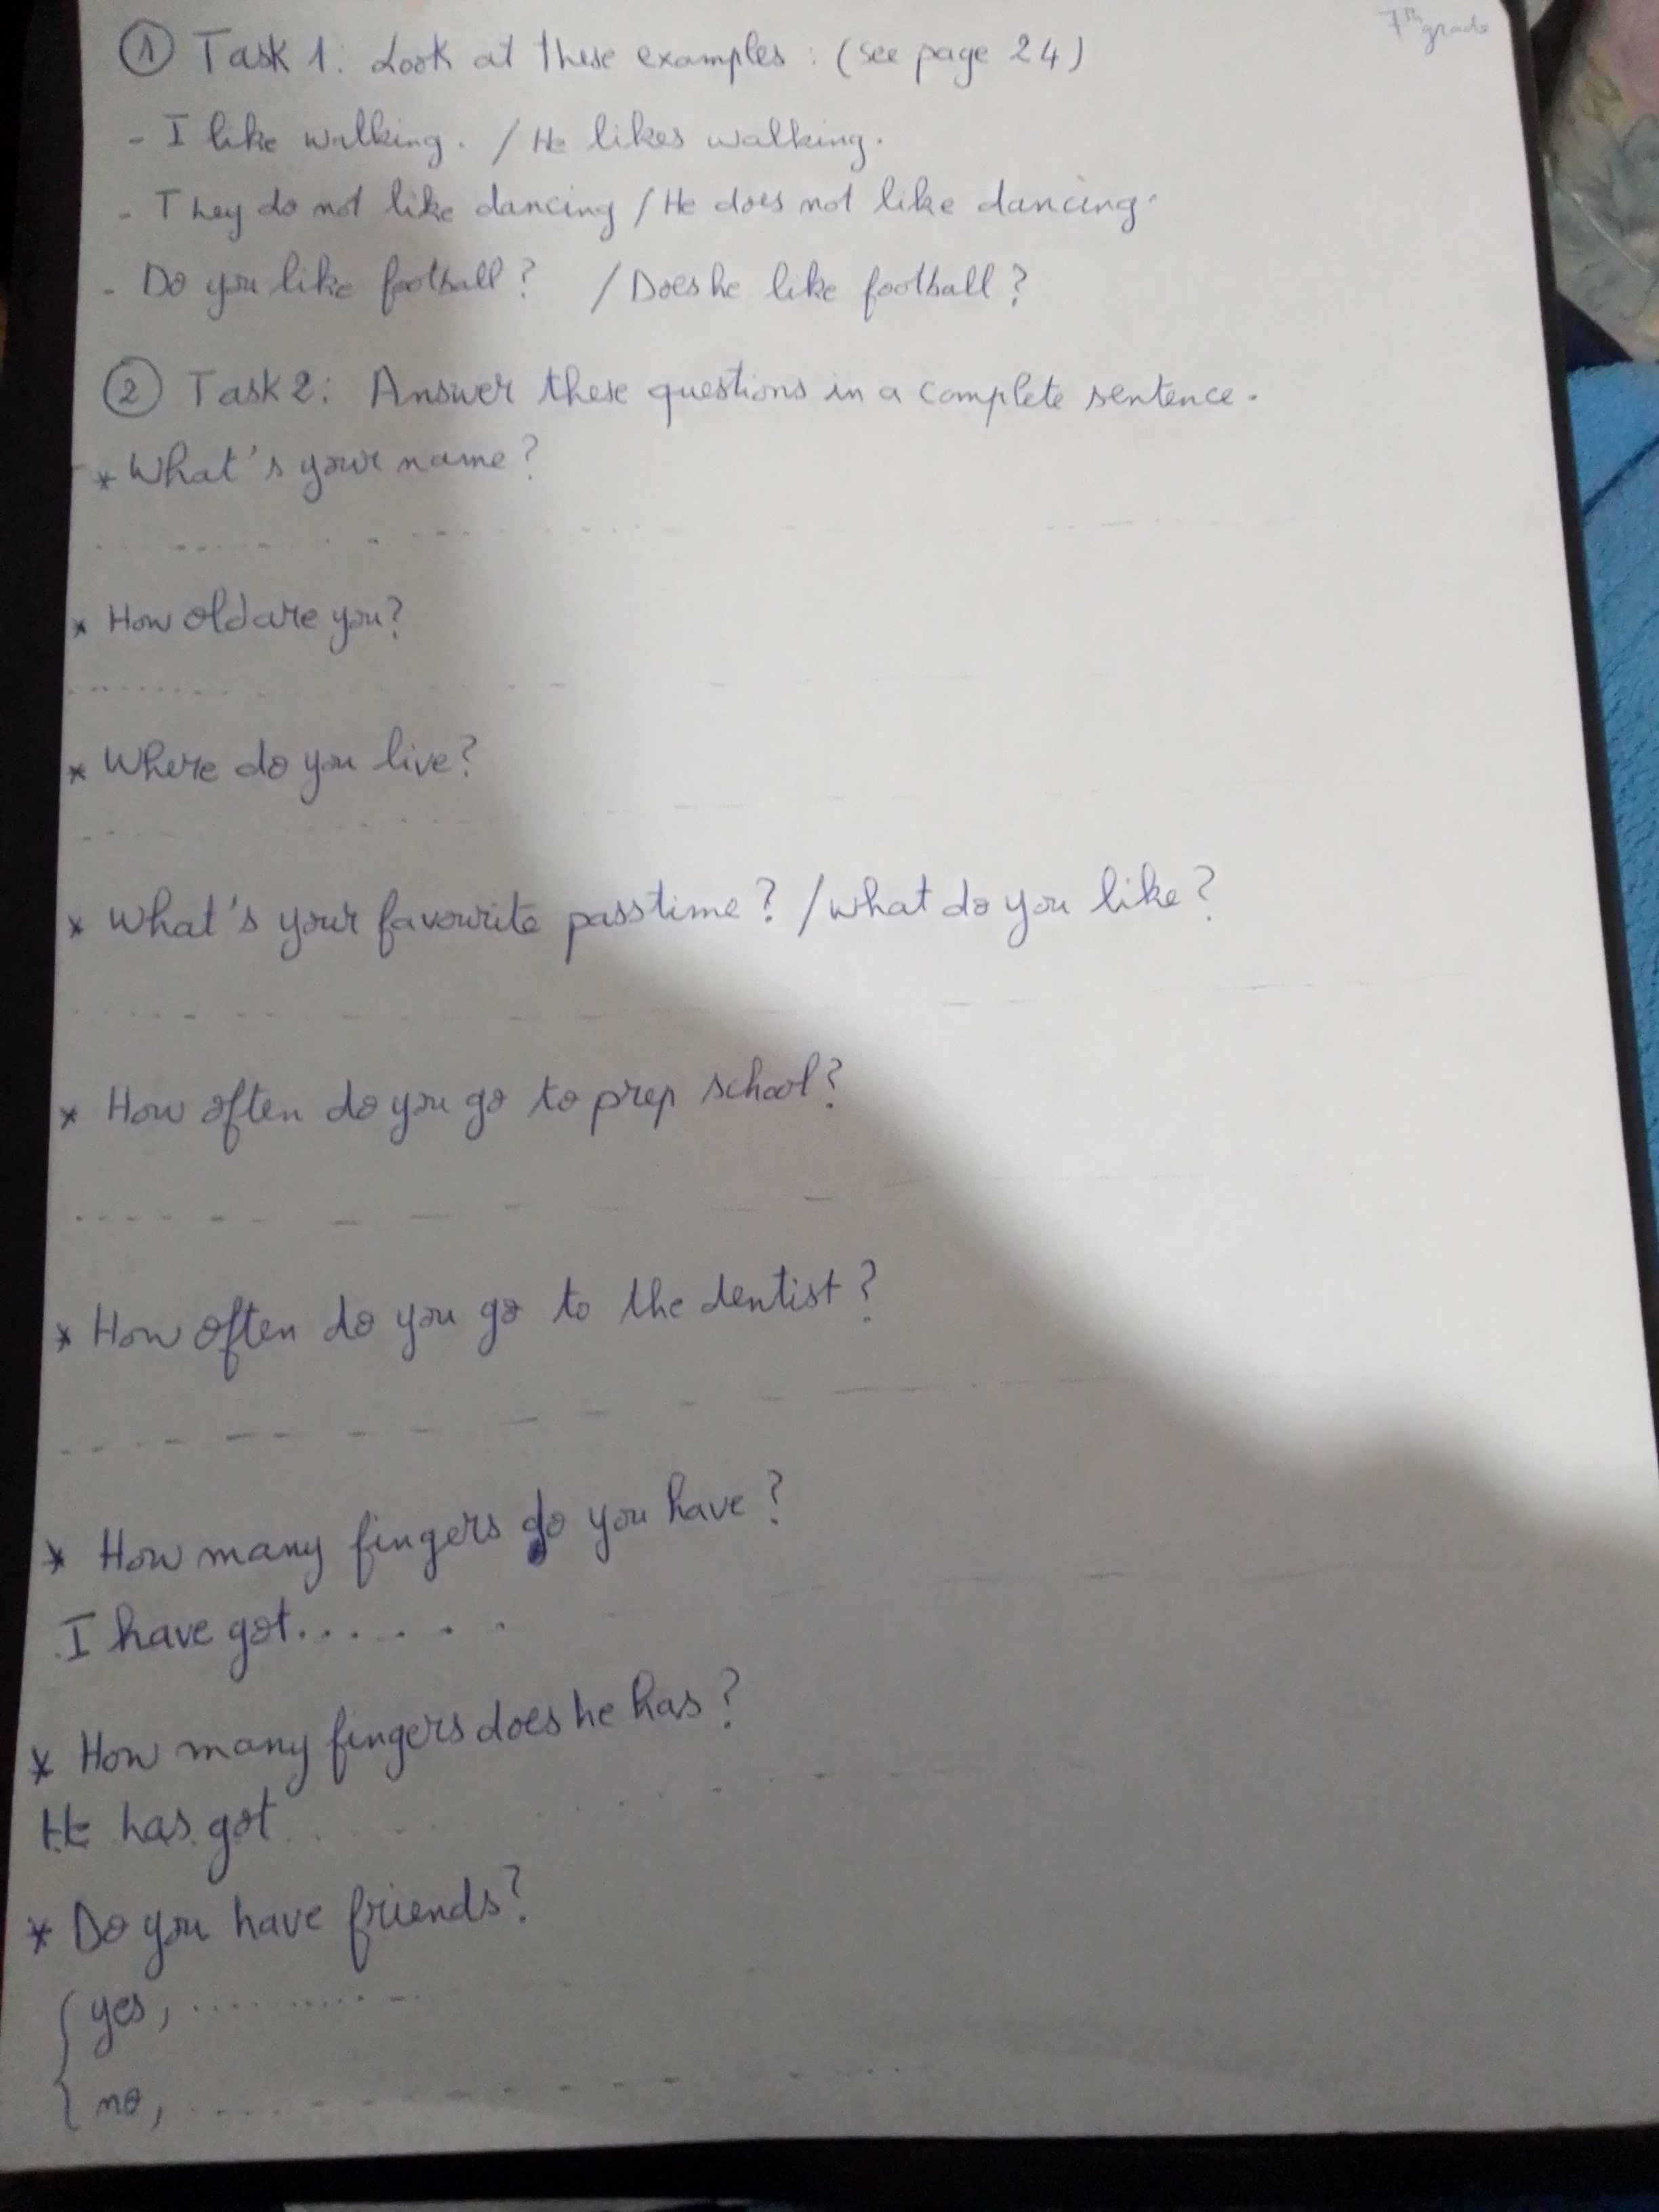 7th grade
① Task 1: Look at these examples: (see page 24)
- I like walking. / He likes walking.
- They do not like dancing / He does not like dancing.
- Do you like football? / Does he like football?
② Task 2: Answer these questions in a complete sentence.
* What's your name?
* How old are you?
* Where do you live?
* What's your favourite passtime? / what do you like?
* How often do you go to prep school?
* How often do you go to the dentist?
* How many fingers do you have?
I have got.......
* How many fingers does he has?
He has got.......
* Do you have friends?
yes, ............
no, ............